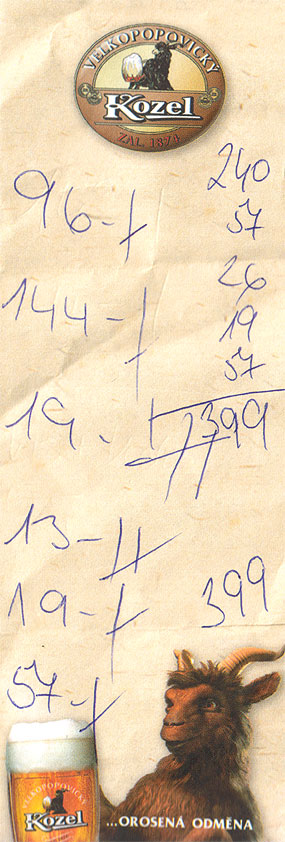 VELKOPOPOVICKÝ
Kozel
ZAL. 1874
96 -
240
57
144 -
26
19
57
19 -
399
13 -
19 -
399
57 -
VELKOPOPOVICKÝ
Kozel
...OROSENÁ ODMĚNA